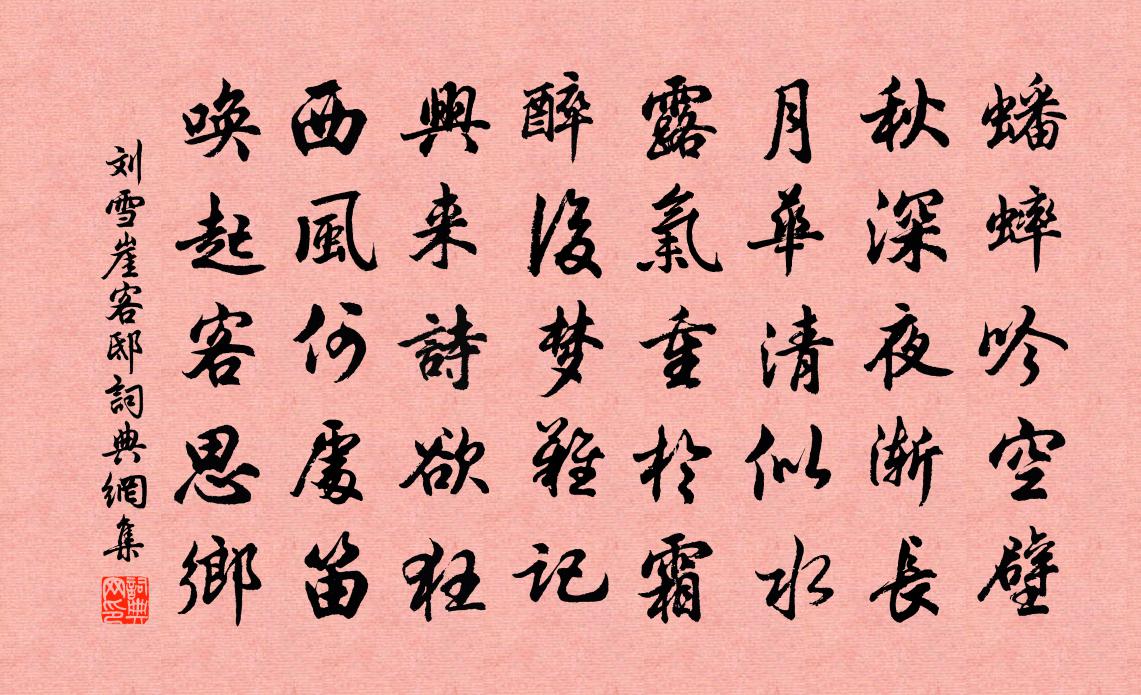 蟠蟀吟空壁
秋深夜渐長
月華清似水
露氣重於霜
醉後梦難記
興来詩欲狂
西風何處笛
唤起客思鄉
刘雪崖客邸詞典網集
詞典网印